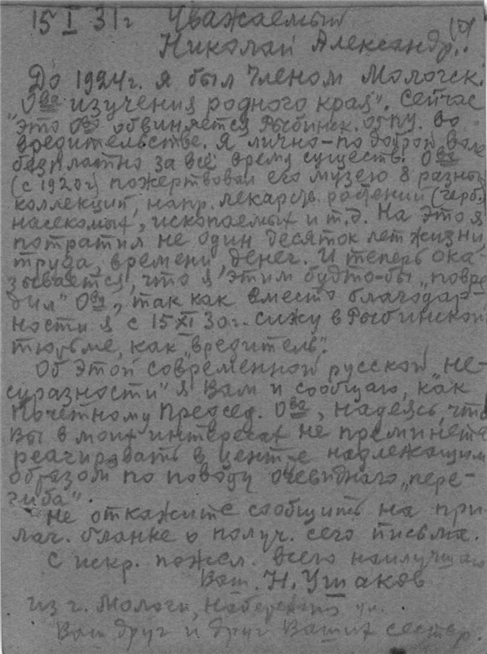 15 I 31 г Уважаемый (5)
Николай Александр.!
До 1924 г. я был членом Мологск.
О-ва "изучения родного края". Сейчас
это О-во обвиняется Рыбинск. ОГПУ. во
вредительстве. Я лично - по доброй воле
безплатно за всё время существ. О-ва
(с 1920 г) пожертвовал его музею 8 разных
коллекций, напр. лекарств. растений (герб.)
насекомых, ископаемых и т.д. На это я
потратил не один десяток лет жизни,
труда, времени, денег. И теперь ока
зывается, что я этим будто-бы "повре
дил" О-ву, так как вместо благодар-
ности я с 15 XI 30 г. сижу в Рыбинской
тюрьме, как "вредитель".
Об этой современной русской "не-
суразности" я Вам и сообщаю, как
Почетному Председ. О-ва, надеясь, что
Вы в моих интересах не преминете
реагировать в центре надлежащим
образом по поводу очевидного "пере-
гиба".
Не откажите сообщить на при
лаг. бланке о получ. сего письма.
С искр. пожел. всего наилучшаго
Ваш Н. Ушаков
из г. Мологи, Набережная ул.
Ваш друг и друг Ваших сестер.